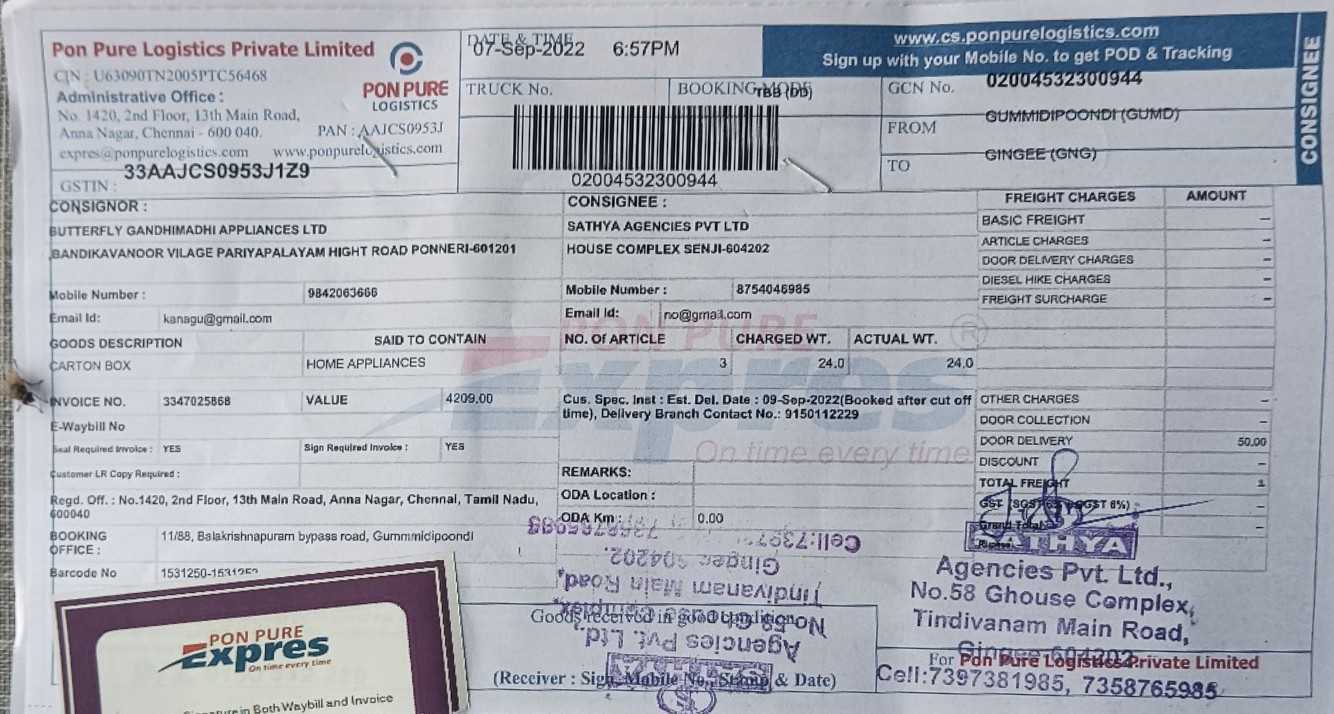 Pon Pure Logistics Private Limited
CIN : U63090TN2005PTC56468
Administrative Office :
No. 1420, 2nd Floor, 13th Main Road,
Anna Nagar, Chennai - 600 040.
PAN : AAJCS0953J
expres@ponpurelogistics.com www.ponpurelogistics.com
GSTIN : 33AAJCS0953J1Z9
PON PURE
LOGISTICS
DATE & TIME
07-Sep-2022 6:57PM
TRUCK No.
BOOKING MODE
TBB (DD)
02004532300944
www.cs.ponpurelogistics.com
Sign up with your Mobile No. to get POD & Tracking
GCN No. 02004532300944
FROM GUMMIDIPOONDI (GUMD)
TO GINGEE (GNG)
CONSIGNEE
CONSIGNOR :
BUTTERFLY GANDHIMADHI APPLIANCES LTD
BANDIKAVANOOR VILAGE PARIYAPALAYAM HIGHT ROAD PONNERI-601201
Mobile Number : 9842063666
Email Id: kanagu@gmail.com
CONSIGNEE :
SATHYA AGENCIES PVT LTD
HOUSE COMPLEX SENJI-604202
Mobile Number : 8754046985
Email Id: no@gmail.com
GOODS DESCRIPTION SAID TO CONTAIN NO. Of ARTICLE CHARGED WT. ACTUAL WT.
CARTON BOX HOME APPLIANCES 3 24.0 24.0
PON PURE
Expres
On time every time
®
INVOICE NO. 3347025868 VALUE 4209.00
E-Waybill No
Seal Required Invoice : YES Sign Required Invoice : YES
Customer LR Copy Required :
Regd. Off. : No.1420, 2nd Floor, 13th Main Road, Anna Nagar, Chennai, Tamil Nadu,
600040
BOOKING OFFICE : 11/88, Balakrishnapuram bypass road, Gummmidipoondi
Barcode No 1531250-
Cus. Spec. Inst : Est. Del. Date : 09-Sep-2022(Booked after cut off
time), Delivery Branch Contact No.: 9150112229
REMARKS:
ODA Location :
ODA Km : 0.00
FREIGHT CHARGES AMOUNT
BASIC FREIGHT –
ARTICLE CHARGES –
DOOR DELIVERY CHARGES –
DIESEL HIKE CHARGES –
FREIGHT SURCHARGE –
OTHER CHARGES –
DOOR COLLECTION –
DOOR DELIVERY 50.00
DISCOUNT –
TOTAL FREIGHT
GST
Grand Total
SATHYA
Agencies Pvt. Ltd.,
No.58 Ghouse Complex,
Tindivanam Main Road,
Gingee 604202
Cell:7397381985, 7358765985
For Pon Pure Logistics Private Limited
Agencies Pvt. Ltd.,
No.58 Ghouse Complex,
Tindivanam Main Road,
Gingee 604202.
Goods received in good condition
(Receiver : Sign, Mobile No., Stamp & Date)
PON PURE
Expres
On time every time
Signature in Both Waybill and Invoice